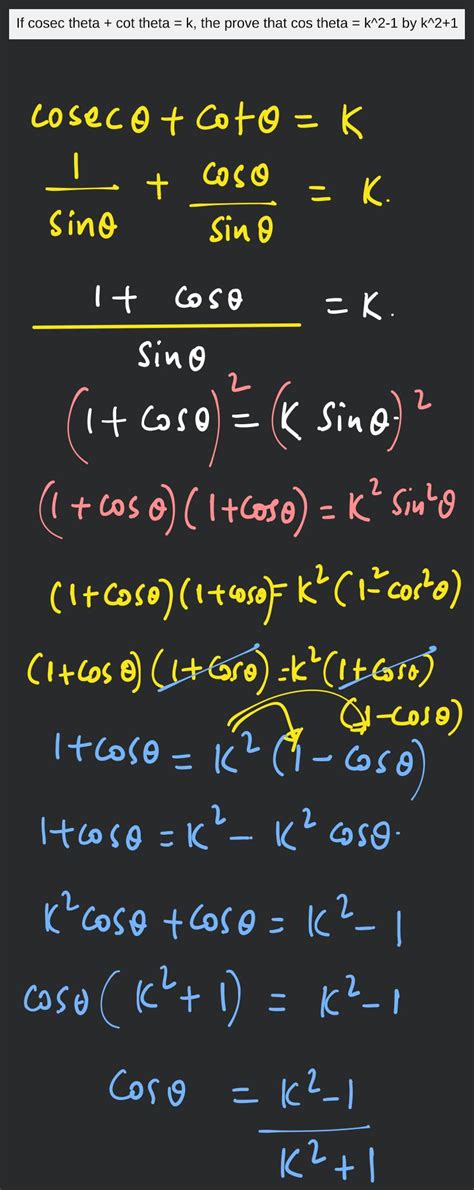 If cosec theta + cot theta = k, the prove that cos theta = k^2-1 by k^2+1
cosec θ + cot θ = K
1/sinθ + cosθ/sinθ = K.
1 + cosθ / sinθ = K.
(1 + cosθ)² = (K sinθ.)²
(1 + cosθ)(1 + cosθ) = K² sin²θ
(1+cosθ)(1+cosθ)= K²(1²-cos²θ)
(1+cosθ)(1+cosθ)=K²(1+cosθ)
(1-cosθ)
1+cosθ = K²(1-cosθ)
1+cosθ = K² - K² cosθ.
K²cosθ + cosθ = K²-1
cosθ (K²+1) = K²-1
cosθ = K²-1 / K²+1